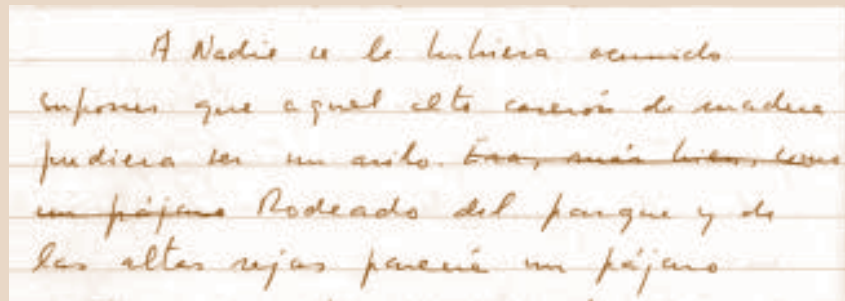 A Nadie se le hubiera ocurrido
suponer que aquel alto caserón de madera
pudiera ser un asilo. Era, más bien, como
un pájaro Rodeado del parque y de
las altas rejas parecía un pájaro